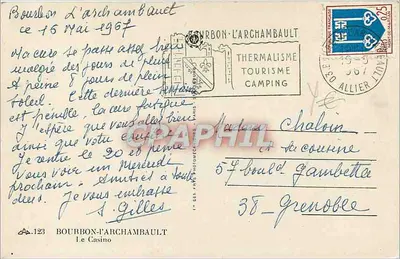 Bourbon L'archambault
ce 16 Mai 1967
Ma cure se passe assez bien
malgré des jours de pluie
A peine 5 jours de plein
soleil. Cette dernière semaine
est pénible, la cure fatigue
J'espère que vous allez bien
ainsi que votre
Je rentre le 20 et pense
vous voir un Mercredi
prochain. Amitiés à toutes
deux. Je vous embrasse
S. Gilles
123 BOURBON-l'ARCHAMBAULT
Le Casino
BOURBON-L'ARCHAMBAULT
THERMALISME
TOURISME
CAMPING
03 ALLIER
1967
0,25
DELCAMPE
Madame Chaloin
et sa cousine
57 bould Gambetta
38 - Grenoble